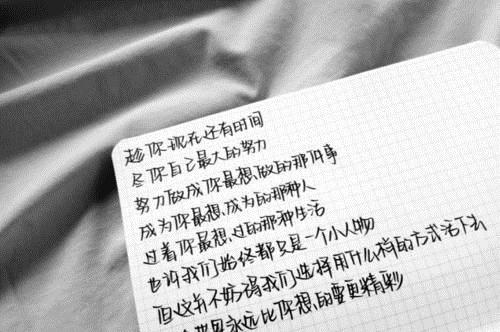 趁你现在还有时间
尽你自己最大的努力
努力做成你最想做的那件事
成为你最想成为的那种人
过着你最想过的那种生活
也许我们始终都只是一个小人物
但这并不妨碍我们选择用什么样的方式活下去
世界永远比你想的要更精彩